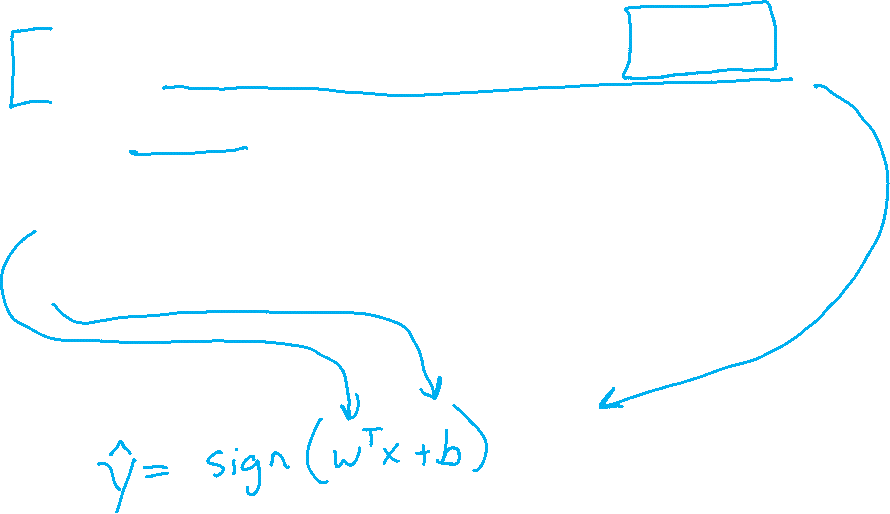 ŷ = sign(wᵀx + b)